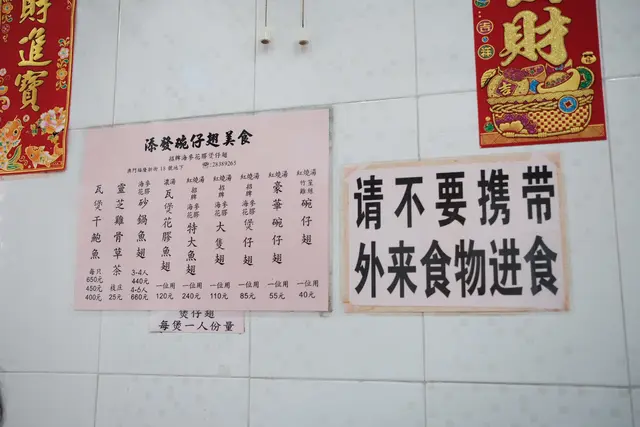 財進寶
財
吉祥
添發碗仔翅美食
招牌海參花膠煲仔翅
☎28389265
紅燒湯 竹笙雞絲 碗仔翅 一位用 40元
紅燒湯 招牌 豪華碗仔翅 一位用 55元
紅燒湯 招牌 海參花膠 煲仔翅 一位用 85元
紅燒湯 招牌 海參花膠 大隻翅 一位用 110元
紅燒湯 招牌 花膠 特大魚翅 一位用 240元
濃湯 瓦煲花膠魚翅 一位用 120元
海參花膠 砂鍋魚翅 3-4人 440元 4-6人 660元
靈芝雞骨草茶 枝庄 25元
瓦煲干鮑魚 每只 650元 450元 400元
煲仔翅
每煲一人份量
请不要携带
外来食物进食